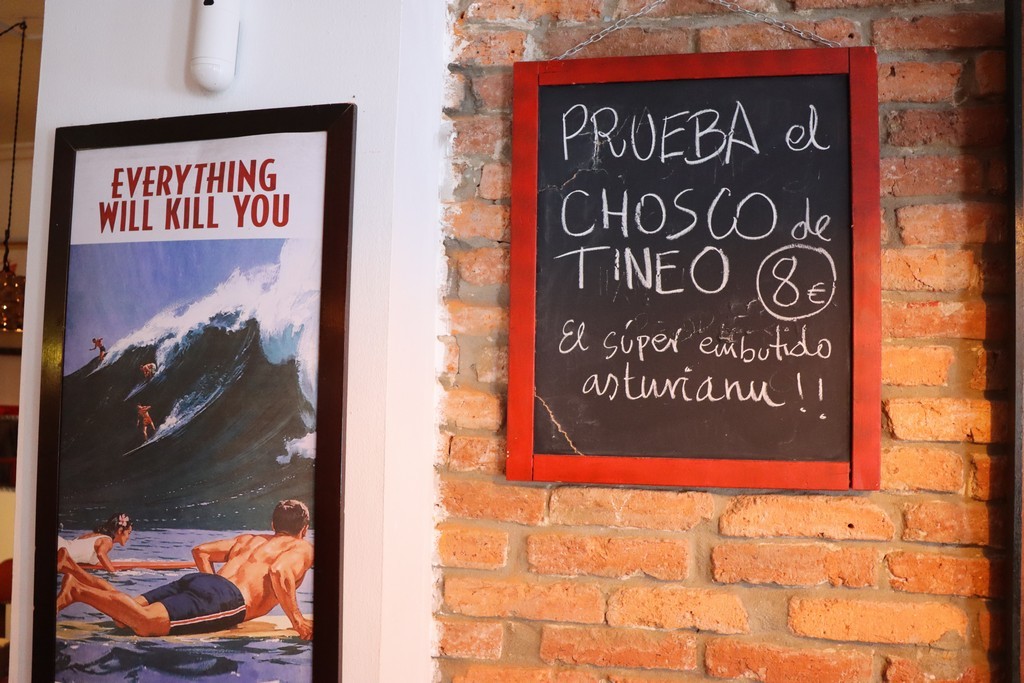 EVERYTHING
WILL KILL YOU
PRUEBA el
CHOSCO de
TINEO 8€
El súper embutido
asturianu !!